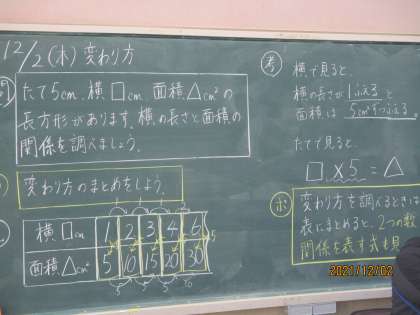 12/2(木)変わり方
問
たて5cm、横□cm、面積△cm²の
長方形があります。横の長さと面積の
関係を調べましょう。
変わり方のまとめをしよう。
横□cm 1 2 3 4 5
面積△cm² 5 10 15 20 30
5 5 5 10
5
考
横で見ると、
横の長さが1ふえると
面積は5cm²ずつふえる
たてで見ると、
□×5=△
ポ
変わり方を調べるときは
表にまとめると、2つの数
関係を表す式も見
2021/12/02